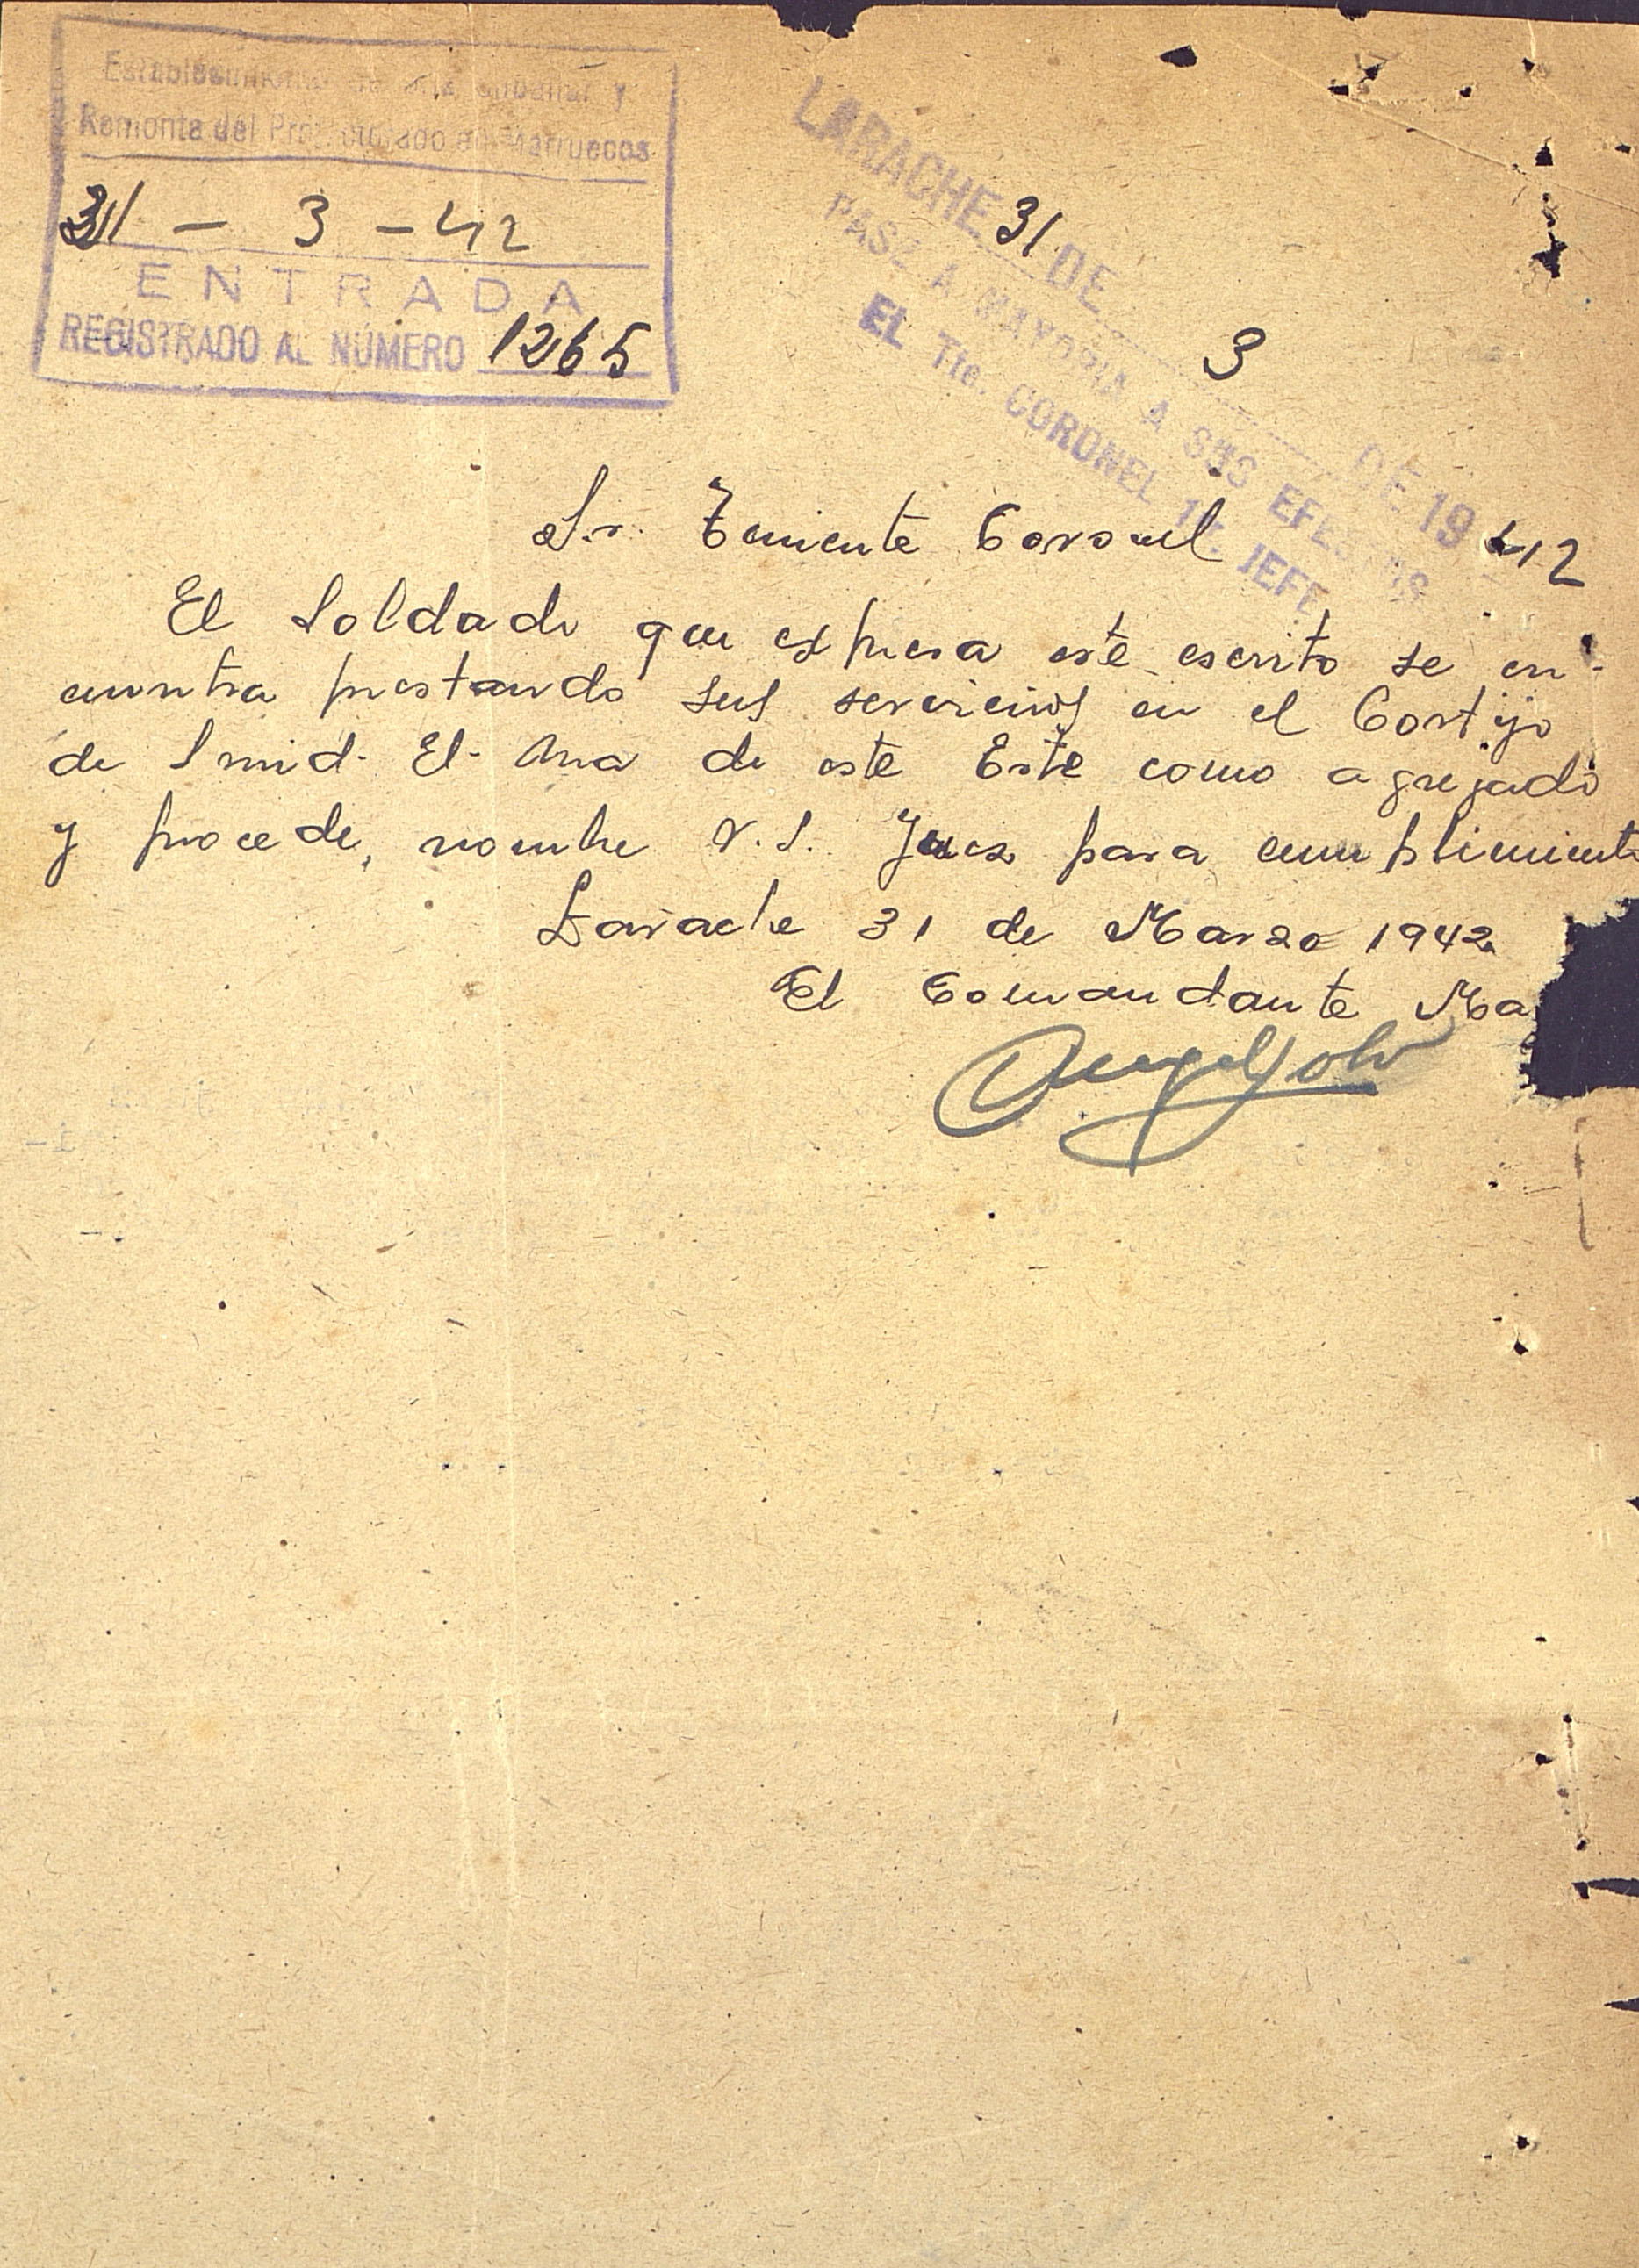 Establecimiento de Cría Caballar y
Remonta del Protectorado en Marruecos
31 - 3 - 42
ENTRADA
REGISTRADO AL NÚMERO 1265
LARACHE 31 DE 3 DE 19 42
PASE A MAYORIA A SUS EFECTOS
EL Tte. CORONEL 1er. JEFE
Sr. Teniente Coronel
El Soldado que expresa este escrito se en-
cuentra prestando sus servicios en el Cortijo
de Smid-El-Ma de este Este como agregado
y procede, nombre V.S. Juez para cumplimiento
Larache 31 de Marzo 1942
El Comandante Ma